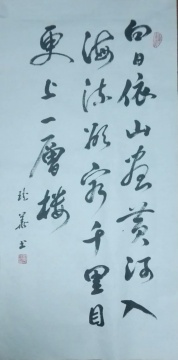 白日依山盡黄河入
海流欲窮千里目
更上一層楼
书